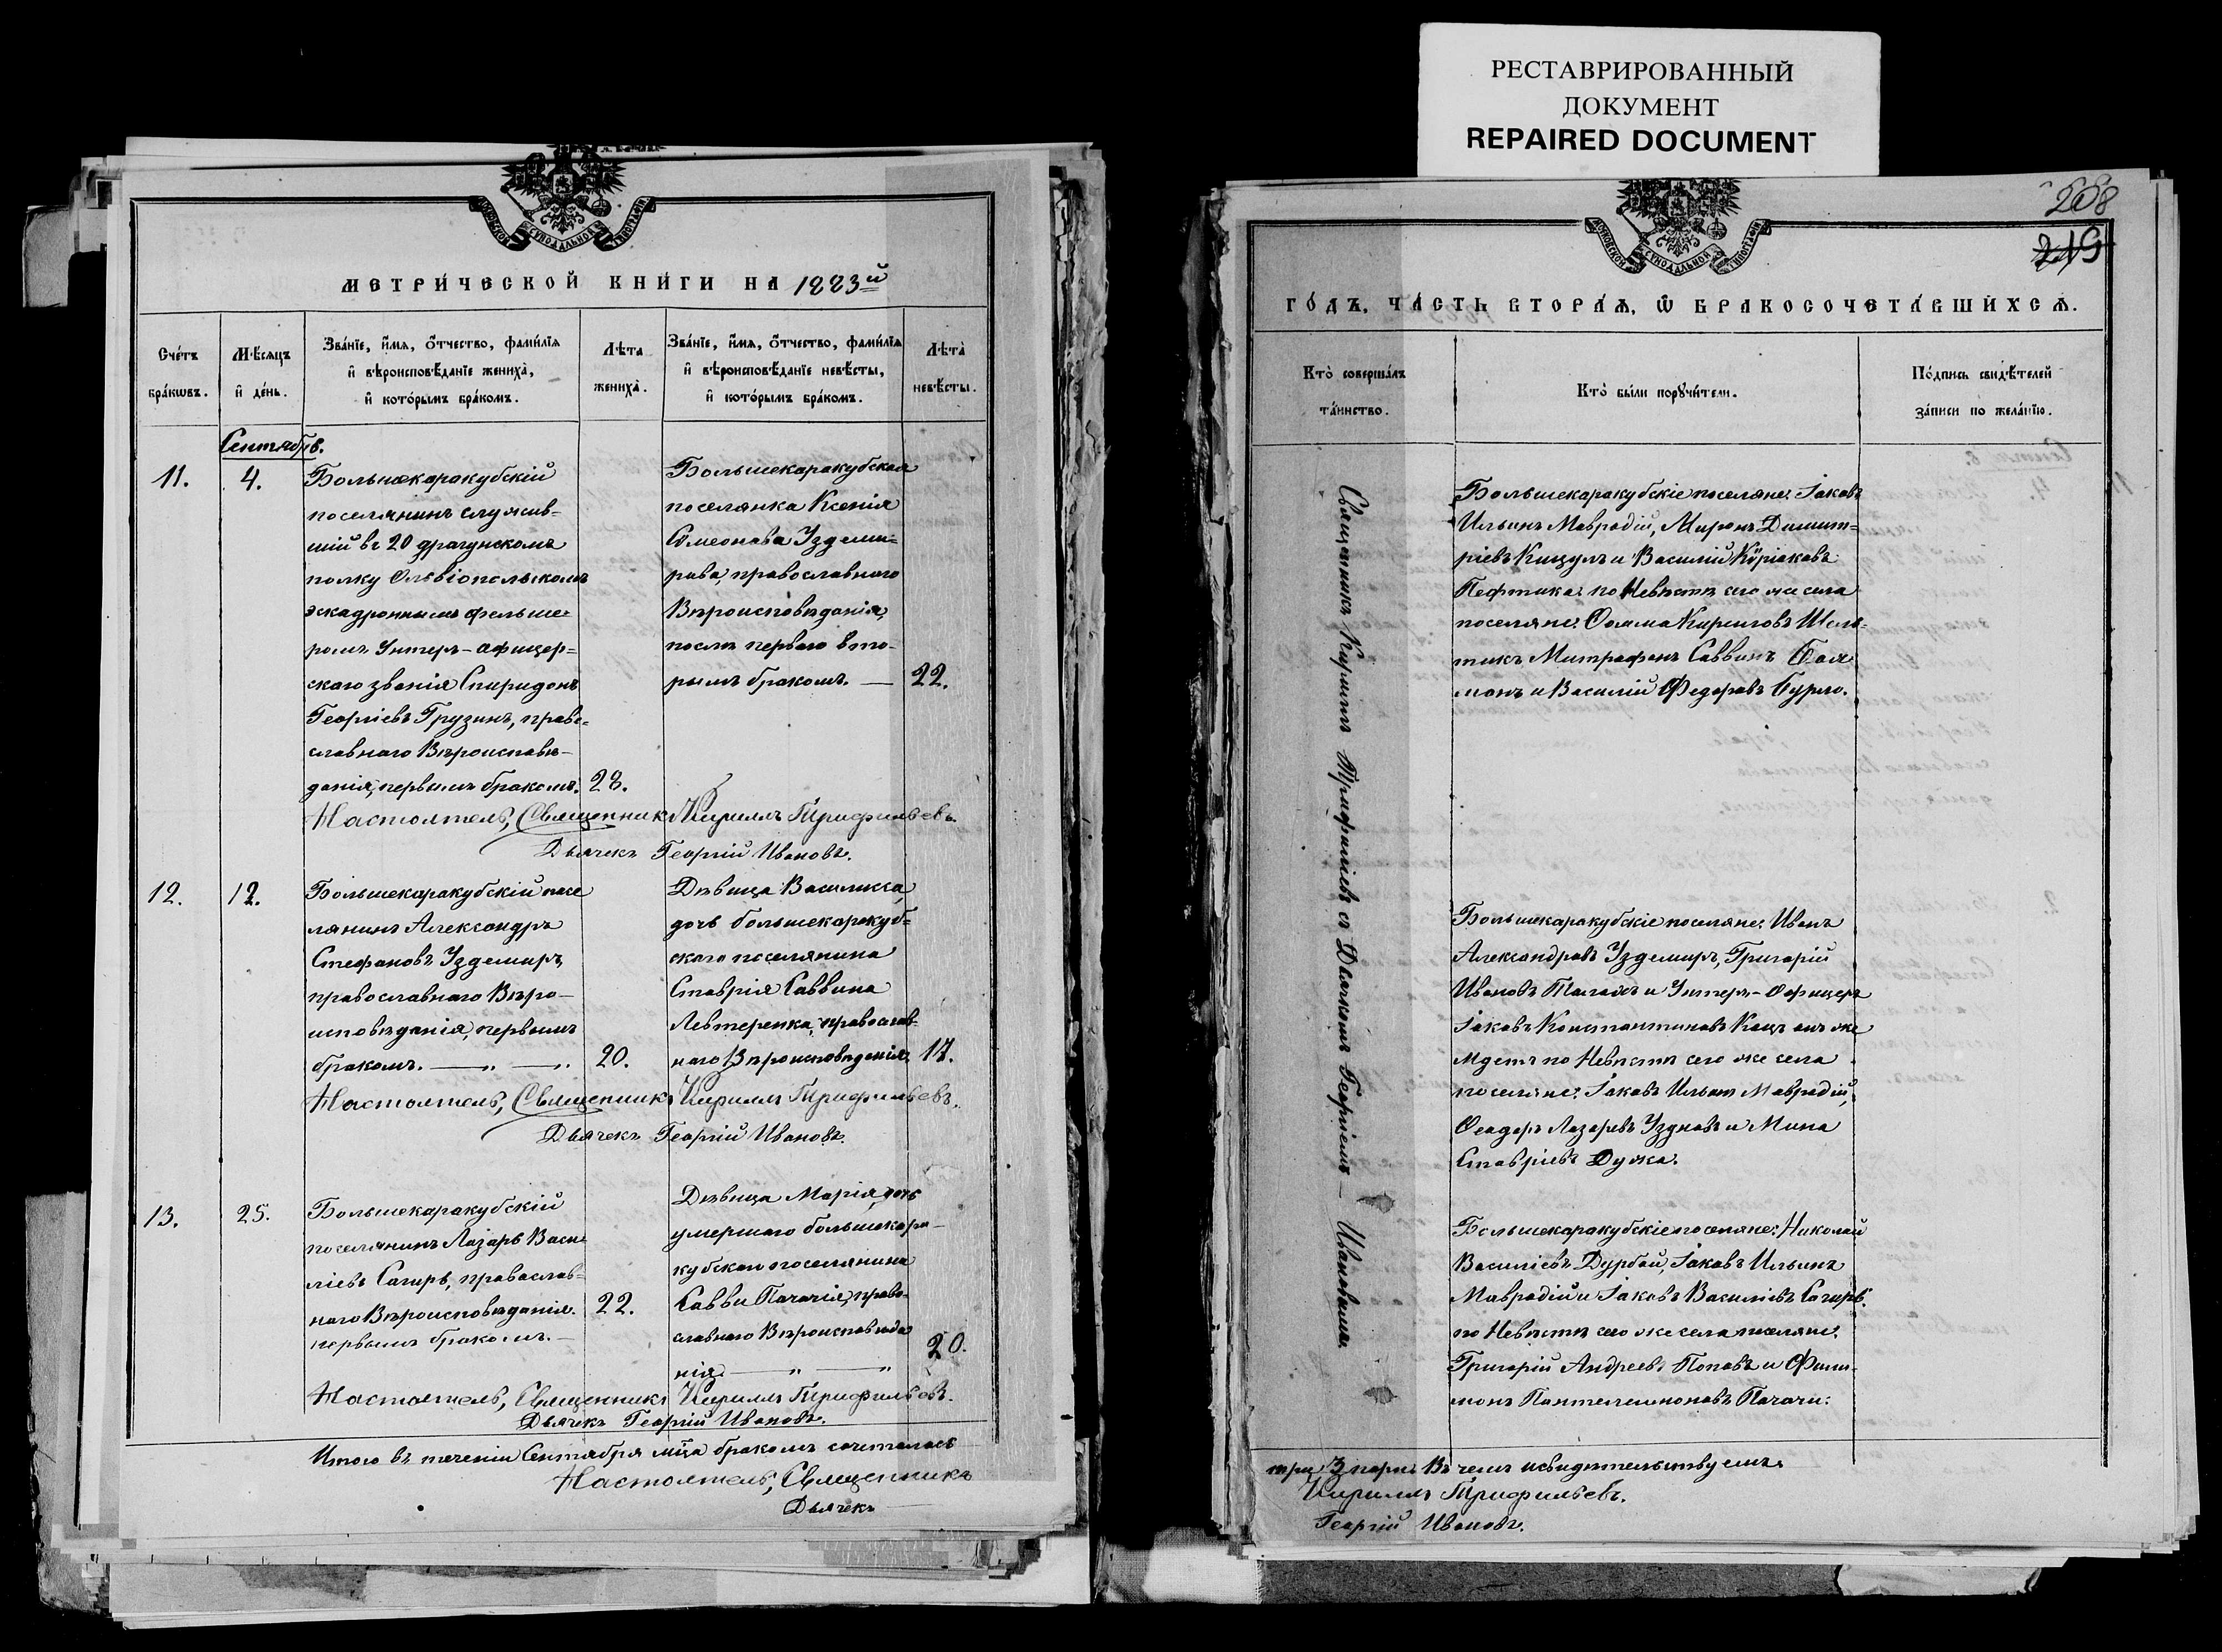 РЕСТАВРИРОВАННЫЙ
ДОКУМЕНТ
REPAIRED DOCUMENT
МЕТРИ́ЧЕСКОЙ КНИ́ГИ НА 1883й
Счéтъ бráкωвъ.
Мѣ́сяцъ и҆ дéнь.
Звáнїе, и҆́мѧ, ѻ҆́тчество, фами́лїѧ
и҆ вѣроисповѣ́данїе женихà,
и҆ котóрымъ брáкомъ.
Лѣта женихà.
Звáнїе, и҆́мѧ, ѻ҆́тчество, фами́лїѧ
и҆ вѣроисповѣ́данїе невѣ́сты,
и҆ котóрымъ брáкомъ.
Лѣтà невѣ́сты.
Сентябрь.
11.
4.
Большекаракубскій
поселянинъ служив=
шій въ 20 драгунскомъ
полку Ольвіопольскомъ
эскадроннымъ фельше=
ромъ Унтеръ-афицер=
скаго званія Спиридонъ
Георгіевъ Грузинъ, право=
славнаго Вѣроисповѣ-
данія, первымъ бракомъ.
28.
Большекаракубская
поселянка Ксенія
Симеонова Уздеми=
рова, православнаго
Вѣроисповѣданія,
послѣ перваго вто-
рымъ бракомъ. —
22.
Настоятель, Священникъ Кириллъ Трифильевъ.
Дьячекъ Георгій Ивановъ.
12.
12.
Большекаракубскій посе
лянинъ Александръ
Стефановъ Уздемиръ,
православнаго Вѣро-
исповѣданія, первымъ
бракомъ. — „ — „
20.
Дѣвица Василисса,
дочь большекаракуб=
скаго поселянина
Ставрія Саввина
Левтеренка, православ=
наго Вѣроисповѣданія.
17.
Настоятель, Священникъ Кириллъ Трифильевъ.
Дьячекъ Георгій Ивановъ.
13.
25.
Большекаракубскій
поселянинъ Лазарь Васи
ліевъ Сагирь, православ=
наго Вѣроисповѣданія.
первымъ бракомъ. —
22.
Дѣвица Марія, дочь
умершаго большекара-
кубскаго поселянина
Саввы Пачачія, право=
славнаго Вѣроисповѣда
нія. — „ — „
20.
Настоятель, Священникъ Кириллъ Трифильевъ.
Дьячекъ Георгій Ивановъ.
Итого въ теченіи Сентября мца бракомъ сочеталось
Настоятель, Священникъ
Дьячекъ
268
219
ГО́ДЪ, ЧА́СТЬ ВТОРА́Ѧ, Ѽ БРАКОСОЧЕТА́ВШИХСѦ.
Ктò совершáлъ тáинство.
Ктò бы́ли порꙋчи́тели.
По́дпись свидѣ́телей зáписи по желáнїю.
Священникъ Кириллъ Трифильевъ съ Дьячкомъ Георгіемъ — Ивановымъ.
Большекаракубскіе поселяне: Іаковъ
Ильинъ Мавродій, Миронъ Димит=
ріевъ Кицулъ и Василій Кѵріаковъ
Пефтика: по Невѣстѣ сего же села
поселяне: Фома Кириловъ Шел=
тикъ Митрофанъ Саввинъ
и Василій Федоровъ Бурло.
Большекаракубскіе поселяне: Иванъ
Александровъ Уздемиръ, Григорій
Ивановъ и Унтеръ-Офицеръ
Іаковъ Константиновъ
по Невѣстѣ сего же села
поселяне: Іаковъ Ильинъ Мавродій,
Феодоръ Лазаревъ и Мина
Ставріевъ Дужа.
Большекаракубскіе поселяне: Николай
Василіевъ Дурбай, Іаковъ Ильинъ
Мавродій и Іаковъ Василіевъ Сагирь.
по Невѣстѣ сего же села поселяне:
Григорій Андреевъ Поповъ и Фили-
монъ Пантелеимоновъ Пачачи:
три 3 пары. Въ чемъ и свидѣтельствуемъ.
Кириллъ Трифильевъ.
Георгій Ивановъ.